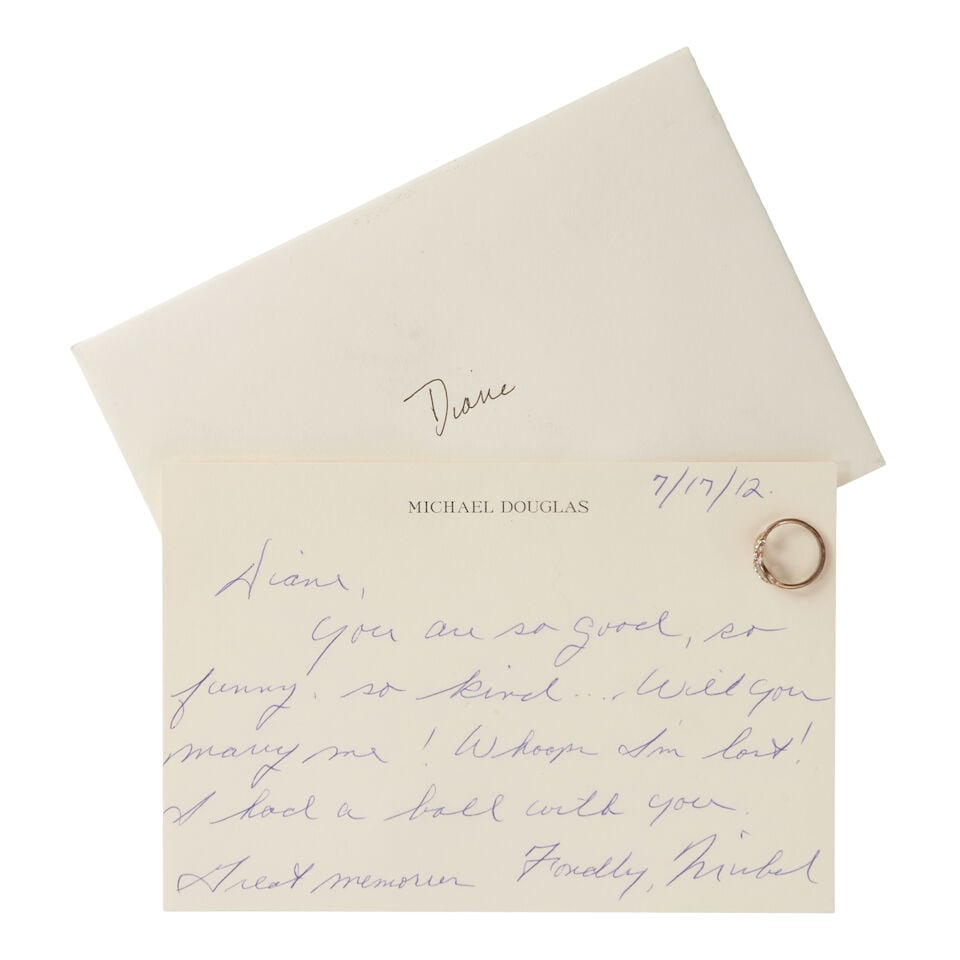 Diane
7/17/12.
MICHAEL DOUGLAS
Diane,
You are so good, so
funny, so kind.... Will you
marry me! Whoops I'm lost!
I had a ball with you.
Great memories Fondly, Michael